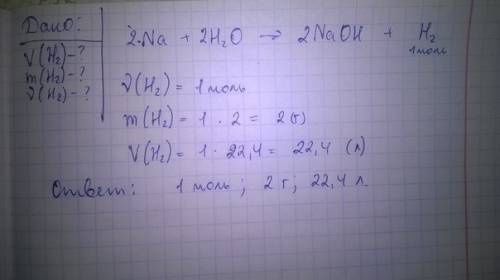 Дано:
V(H₂)-?
m(H₂)-?
ν(H₂)-?
2Na + 2H₂O → 2NaOH + H₂
1 моль
ν(H₂) = 1 моль
m(H₂) = 1 · 2 = 2(г)
V(H₂) = 1 · 22,4 = 22,4 (л)
Ответ: 1 моль; 2 г; 22,4 л.